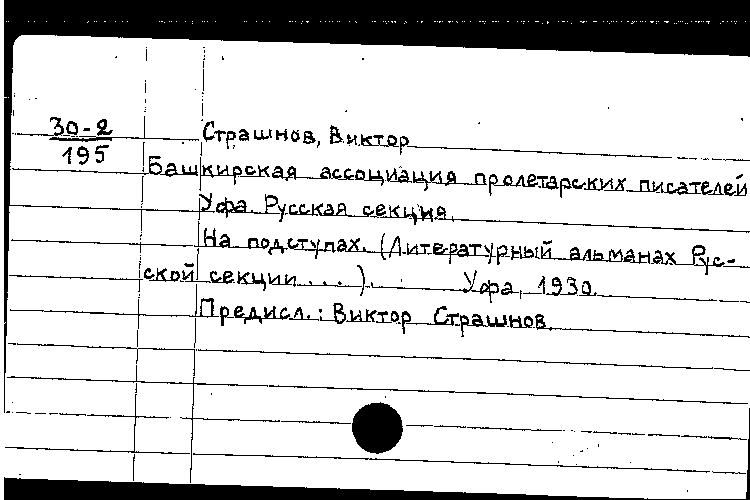 30-2
195
Страшнов, Виктор
Башкирская ассоциация пролетарских писателей
Уфа. Русская секция.
На подступах. (Литературный альманах Рус-
ской секции ...). Уфа, 1930.
Предисл.: Виктор Страшнов.